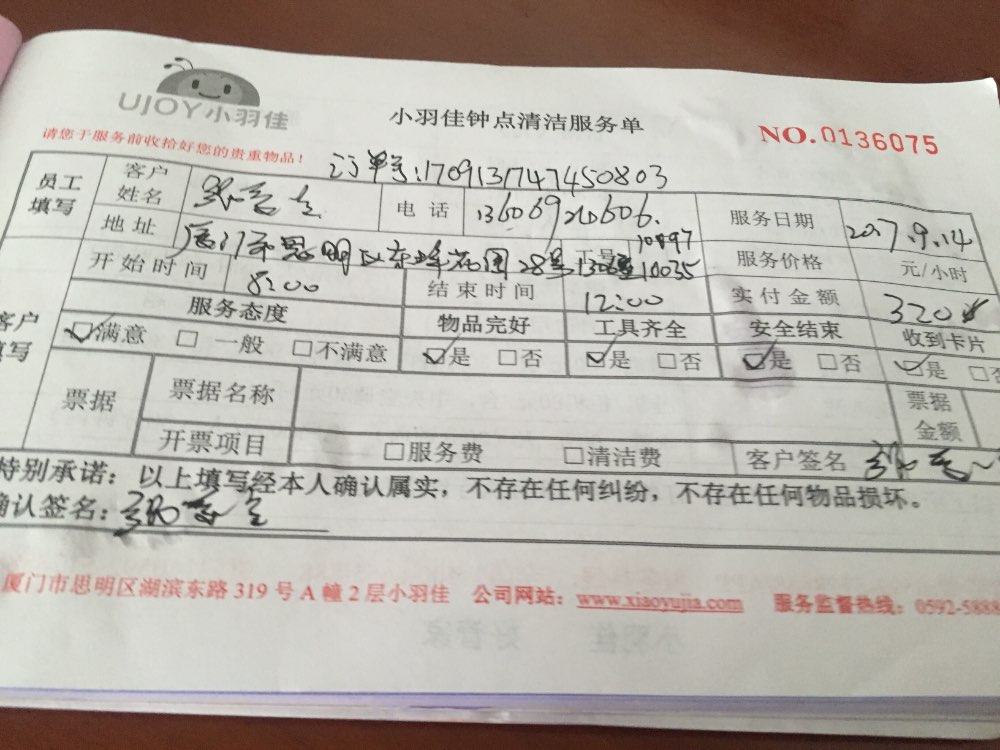 UJOY小羽佳
小羽佳钟点清洁服务单
NO.0136075
请您于服务前收拾好您的贵重物品!
订单号:170913747450803
员工填写 客户姓名 电话 13606926606. 服务日期 2017.9.14
地址 厦门市思明区 28号 工号 10897 10035 服务价格 元/小时
开始时间 8:00 结束时间 12:00 实付金额 320
客户填写 服务态度 物品完好 工具齐全 安全结束 收到卡片
☑满意 □一般 □不满意 ☑是 □否 ☑是 □否 ☑是 □否 ☑是 □否
票据 票据名称 票据金额
开票项目 □服务费 □清洁费 客户签名
特别承诺:以上填写经本人确认属实,不存在任何纠纷,不存在任何物品损坏。
确认签名:
厦门市思明区湖滨东路 319 号 A 幢 2 层小羽佳 公司网站:www.xiaoyujia.com 服务监督热线:0592-5888